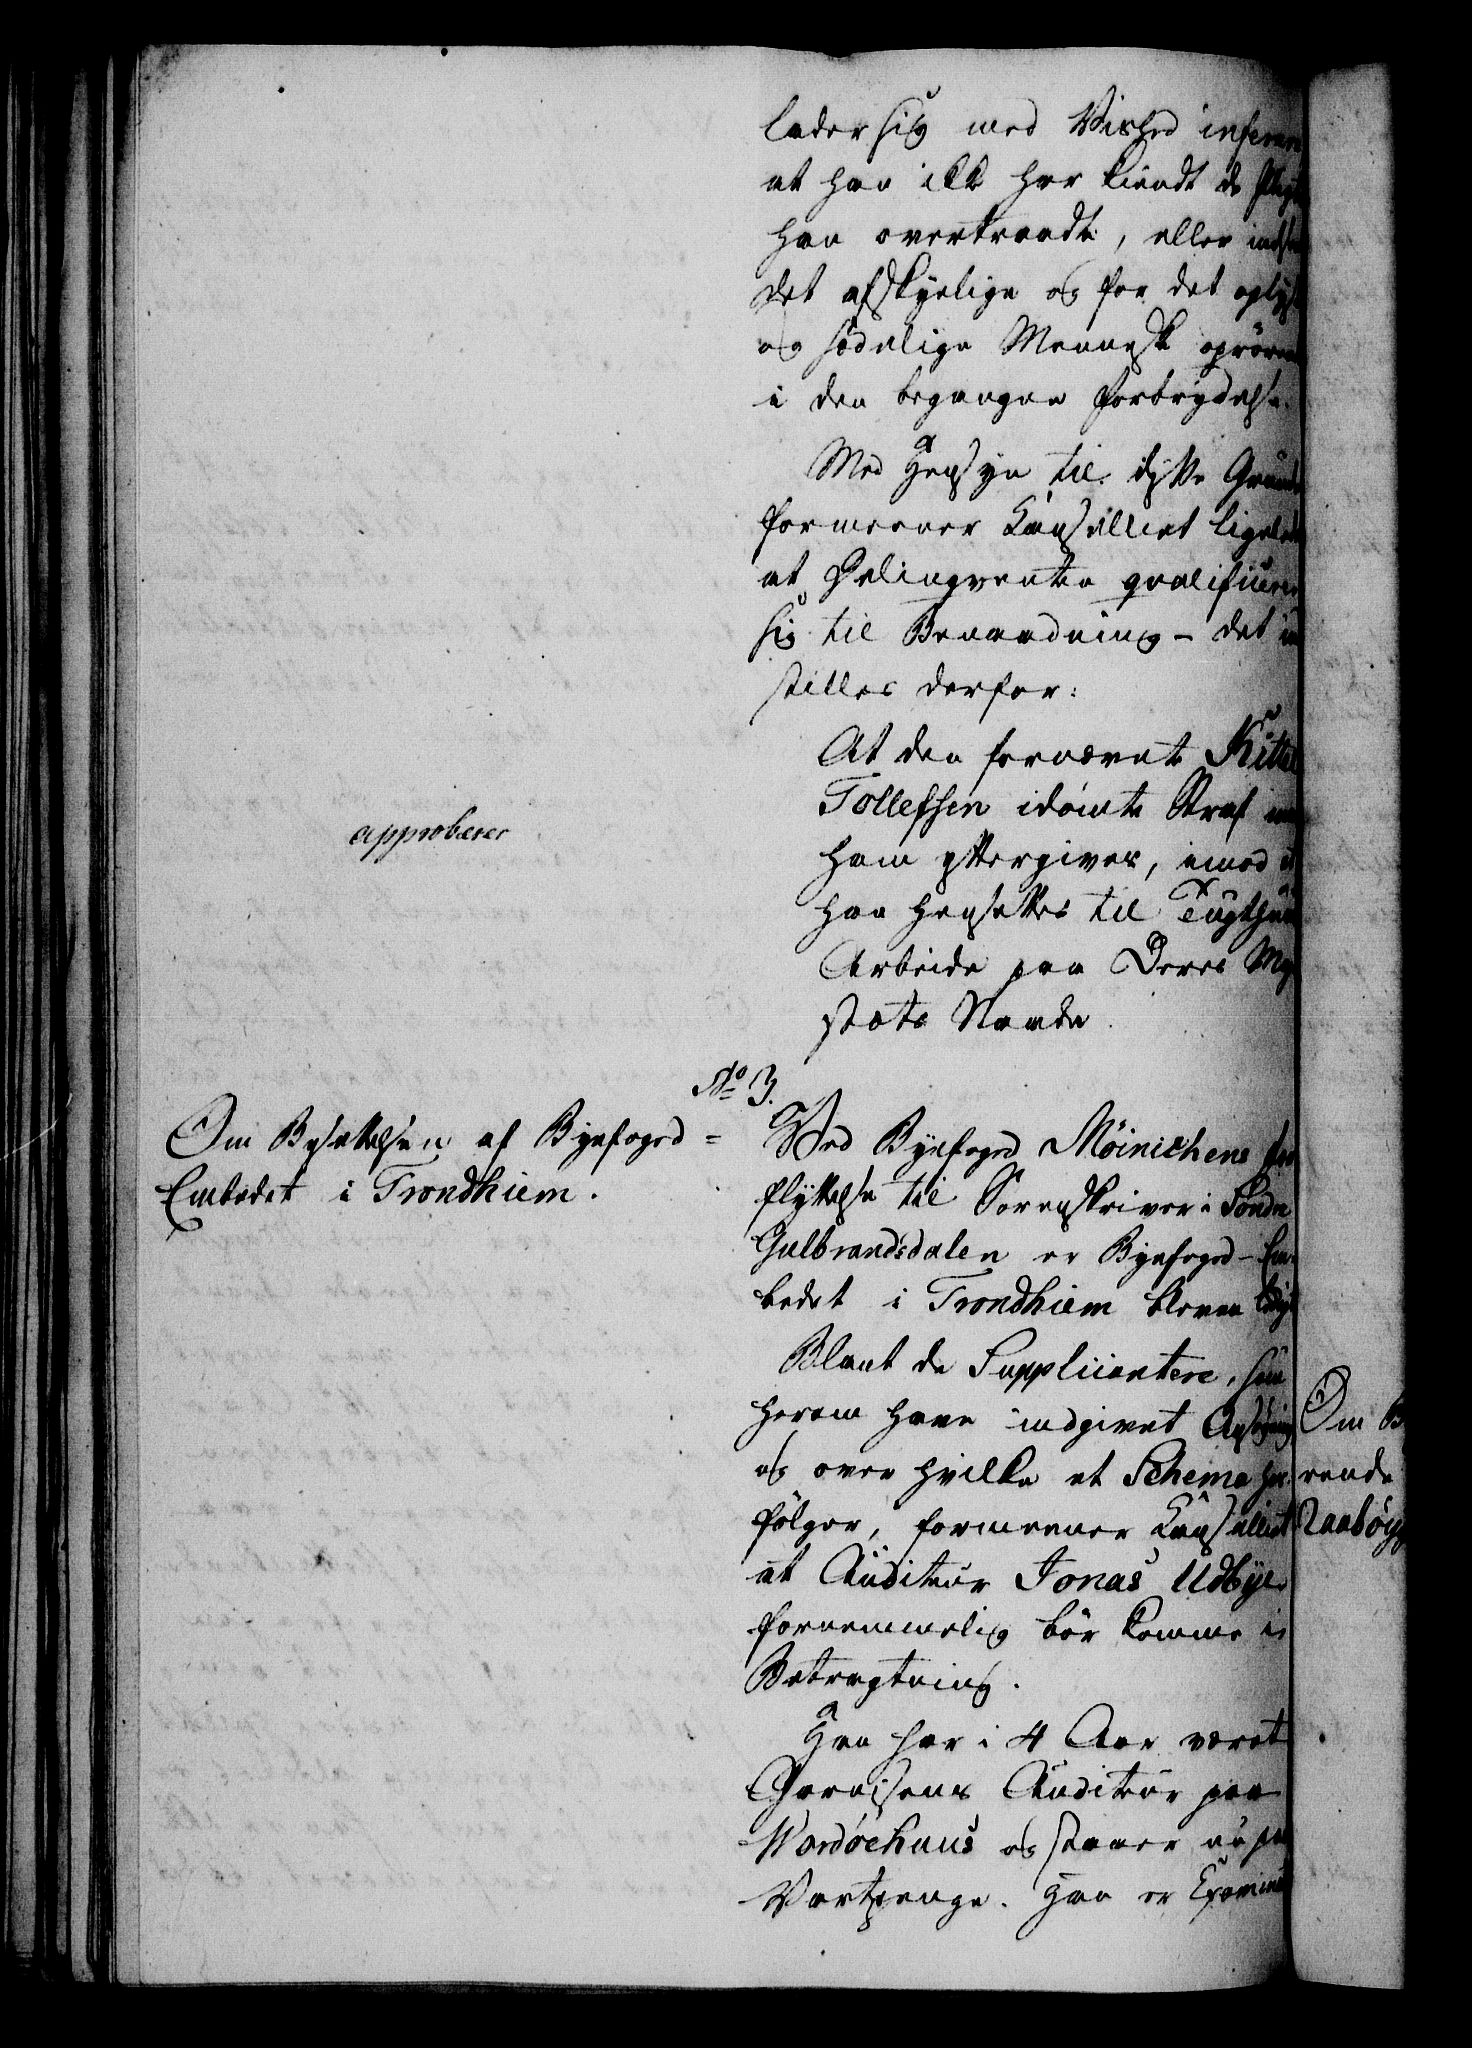 lader sig med Vished infere
at han ikke har kiendt de Pligt
han overtraadte, eller indse
det afskyelige og for det oplyst
og sædelige Menneske oprøren
i den begangne Forbrydelse.
Med Hensyn til disse Grunde
formeener Cancelliet ligelede
at Delinqventen qvalificerer
sig til Benaadning – det in
stilles derfor:
At den fornævnte Kittel
Tollefsen idømte Straf
ham eftergives, imod at
han hensættes til Tugthuus
Arbeide paa Deres Maj
stæts Naade.
approberes
No 3.
Om Besættelsen af Byefoged-
Embedet i Trondhiem.
Ved Byefoged Møinichens for
flyttelse til Sorenskriver i Søndre
Gulbrandsdalen er Byefoged-Em-
bedet i Trondhiem bleven ledigt
Blant de Supplicantere, som
herom have indgivet Ansøgning
og over hvilke et Schema her
følger, formeener Cancelliet
at Auditeur Jonas Udbye
fornemmelig bør komme i
Betragtning.
Han har i 4 Aar været
Garnisons Auditeur paa
Wardøehuus og staaer nu paa
Vartpenge. Han er Examine
Om B
rende
Raabøyg